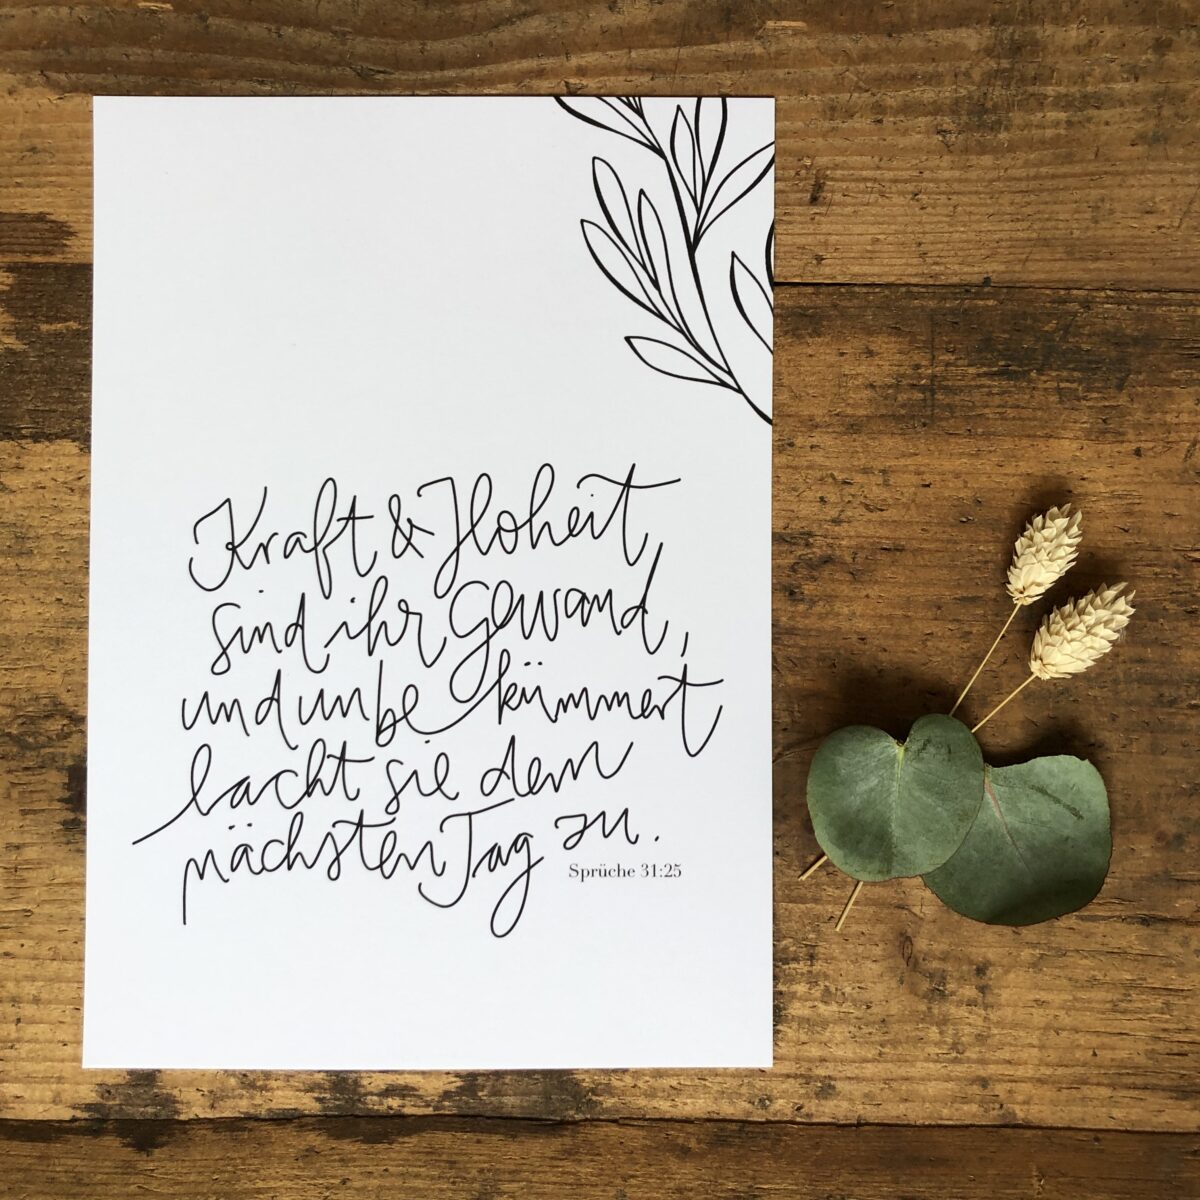 Kraft & Hoheit
sind ihr Gewand,
und unbekümmert
lacht sie dem
nächsten Tag zu.
Sprüche 31:25